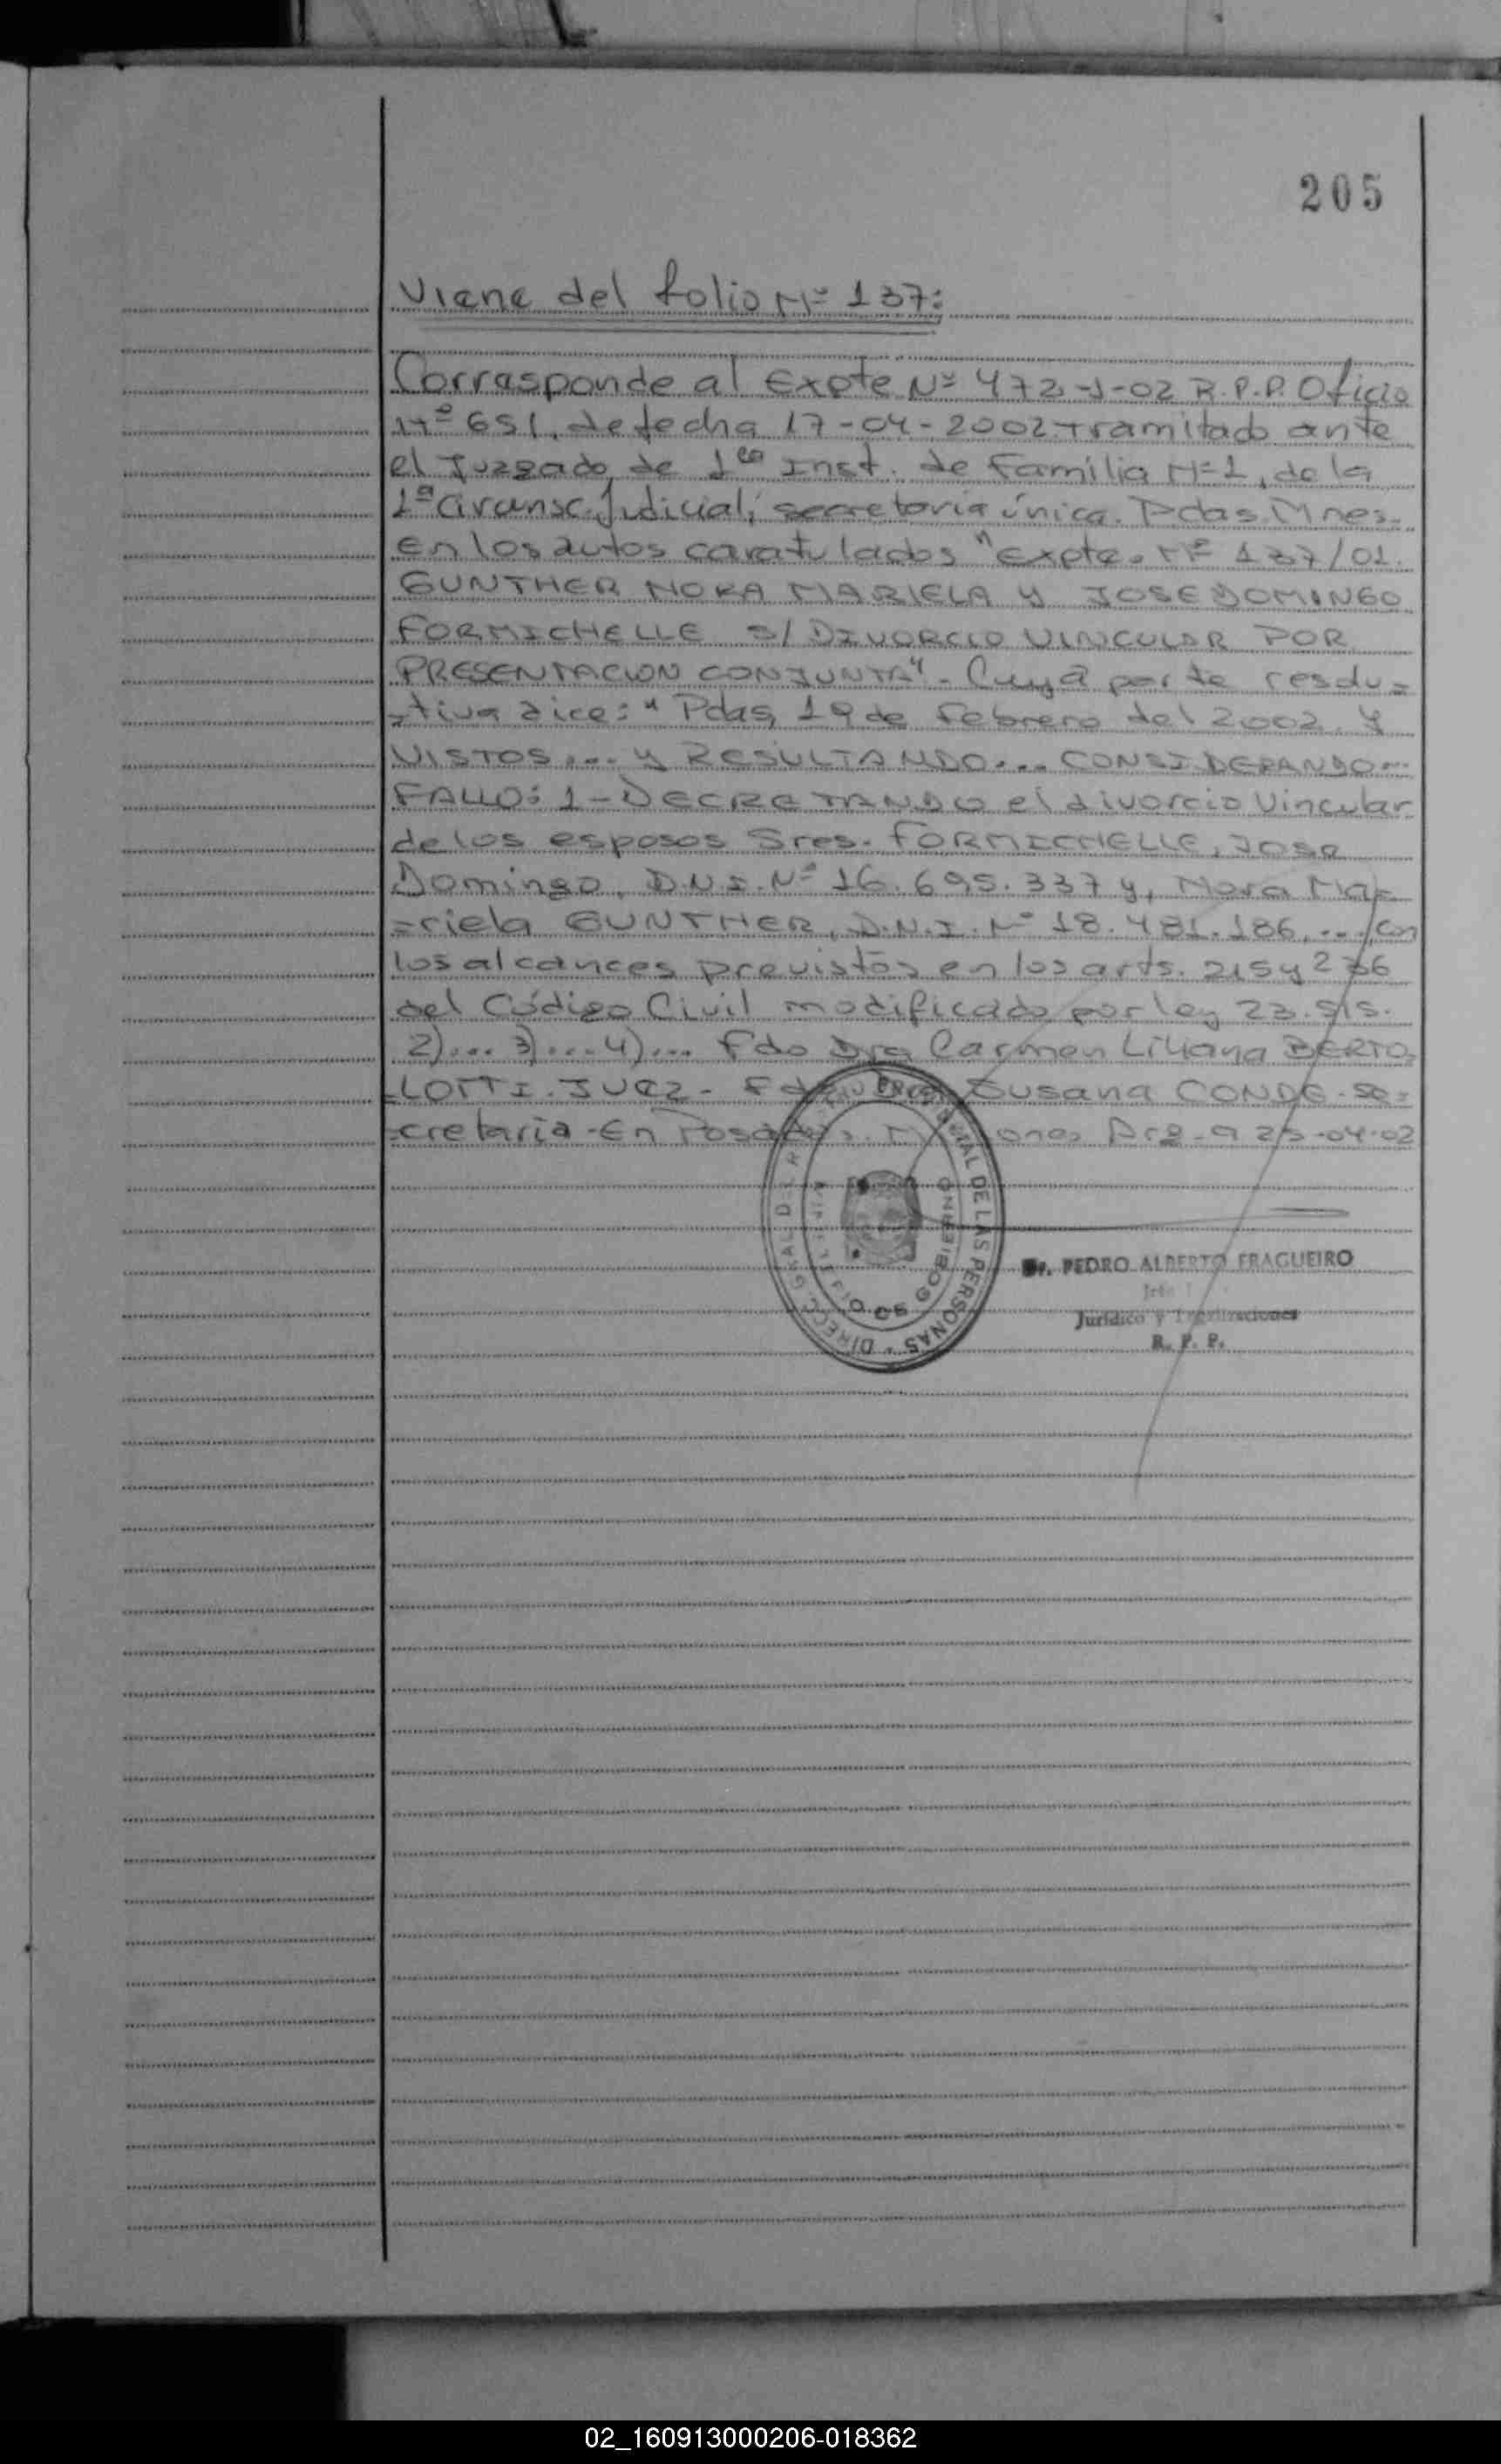 205
Viene del folio Nº 137:
Corresponde al Expte Nº 472-J-02 R.P.P. Oficio
Nº 651, de fecha 17-04-2002. Tramitado ante
el Juzgado, de 1ra Inst. de Familia Nº 1, de la
1ª Circunsc. Judicial, secretaría única. Pdas. Mnes.
En los autos caratulados "Expte. Nº 137/01.
GUNTHER NORA MARIELA Y JOSE DOMINGO
FORMICHELLE S/ DIVORCIO VINCULAR POR
PRESENTACION CONJUNTA". Cuya parte resolu=
=tiva dice: " Pdas, 19 de Febrero del 2002. Y
VISTOS... y RESULTANDO... CONSIDERANDO...
FALLO: 1-DECRETANDO el divorcio Vincular
de los esposos Sres. FORMICHELLE, Jose
Domingo, D.N.I. Nº 16.695.337 y, Nora Ma=
=riela GUNTHER, D.N.I. Nº 18.481.186, ..., con
los alcances previstos en los arts. 215 y 236
del Código Civil modificado por ley 23.515.
2)... 3)... 4)... Fdo Dra Carmen Liliana BERTO=
LOTTI. JUEZ. Dra Susana CONDE. Se=
=cretaria. En Posadas. Misiones Arg. a 25-04-02
DE LAS PERSONAS
DE GOBIERNO
Dr. PEDRO ALBERTO FRAGUEIRO
Jurídico y Legalizaciones
R. P. P.
02_160913000206-018362